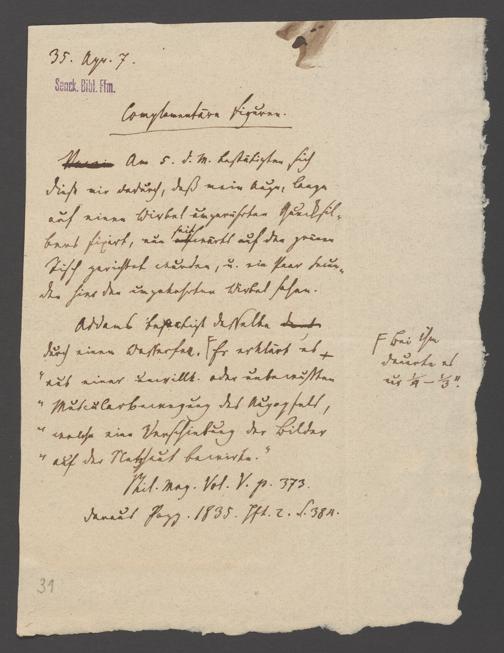 35. Apr. 7.
Senck. Bibl. Ffm.
Complementäre Figuren.
Am 5. d. M. bestätigten sich
diese mir dadurch, daß mein Auge, lange
auf einen Wirbel umgerührten Quecksil-
bers fixirt, nun seitwärts auf den grünen
Tisch gerichtet wurden, u. ein Paar Secun-
den hier den umgekehrten Wirbel sahen.
Addams bestätigt dasselbe
durch einen Wasserfall. Er erklärt es
"aus einer unwillk. oder unbewussten
"Muscularbewegung des Augapfels,
"welche eine Verschiebung der Bilder
"auf der Netzhaut bewirke."
Phil. Mag. Vol. V. p. 373.
daraus Pogg. 1835. Hft. 2. S. 384.
Bei ihm
dauerte es
nur 1/4 – 1/3".
31